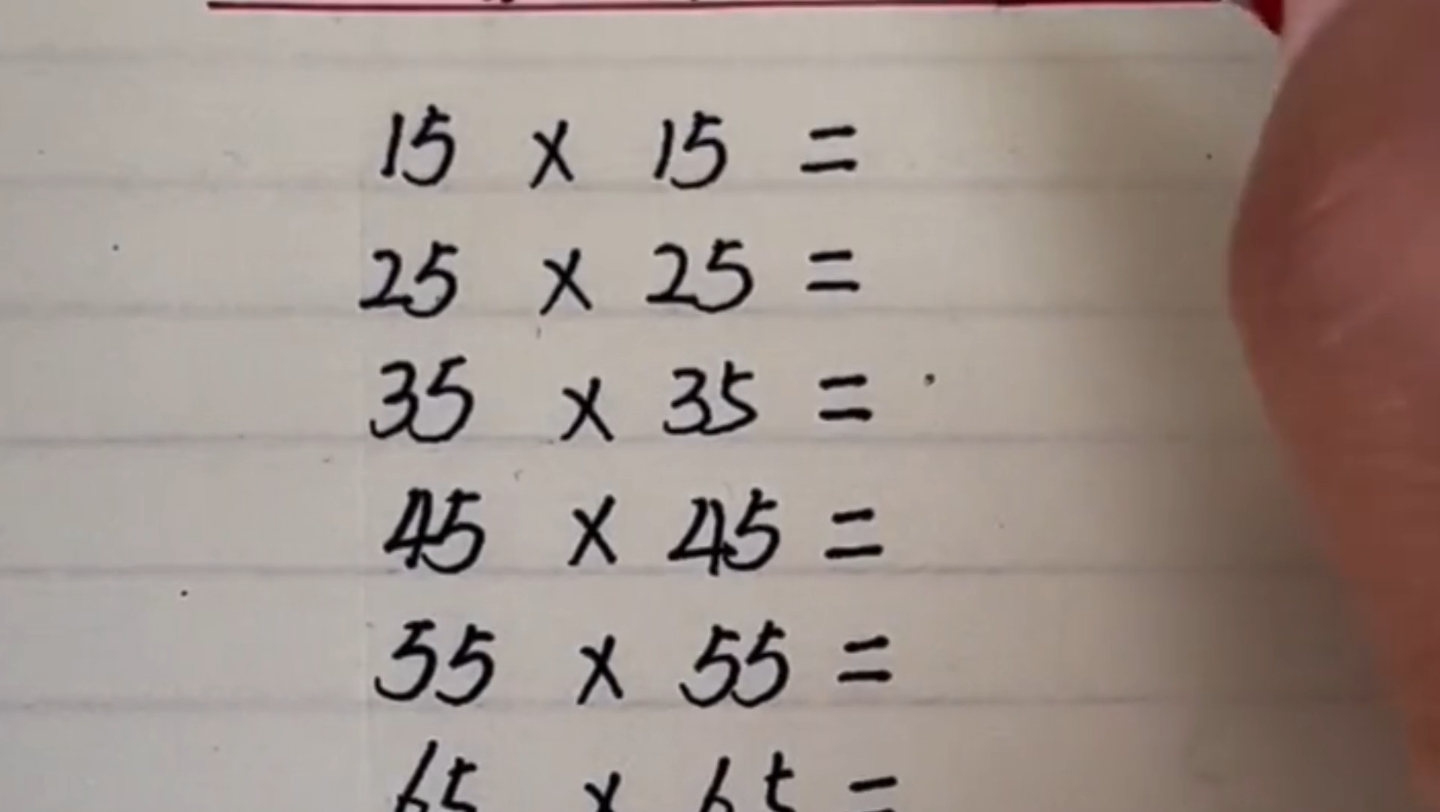 15 × 15 =
25 × 25 =
35 × 35 =
45 × 45 =
55 × 55 =
65 × 65 =